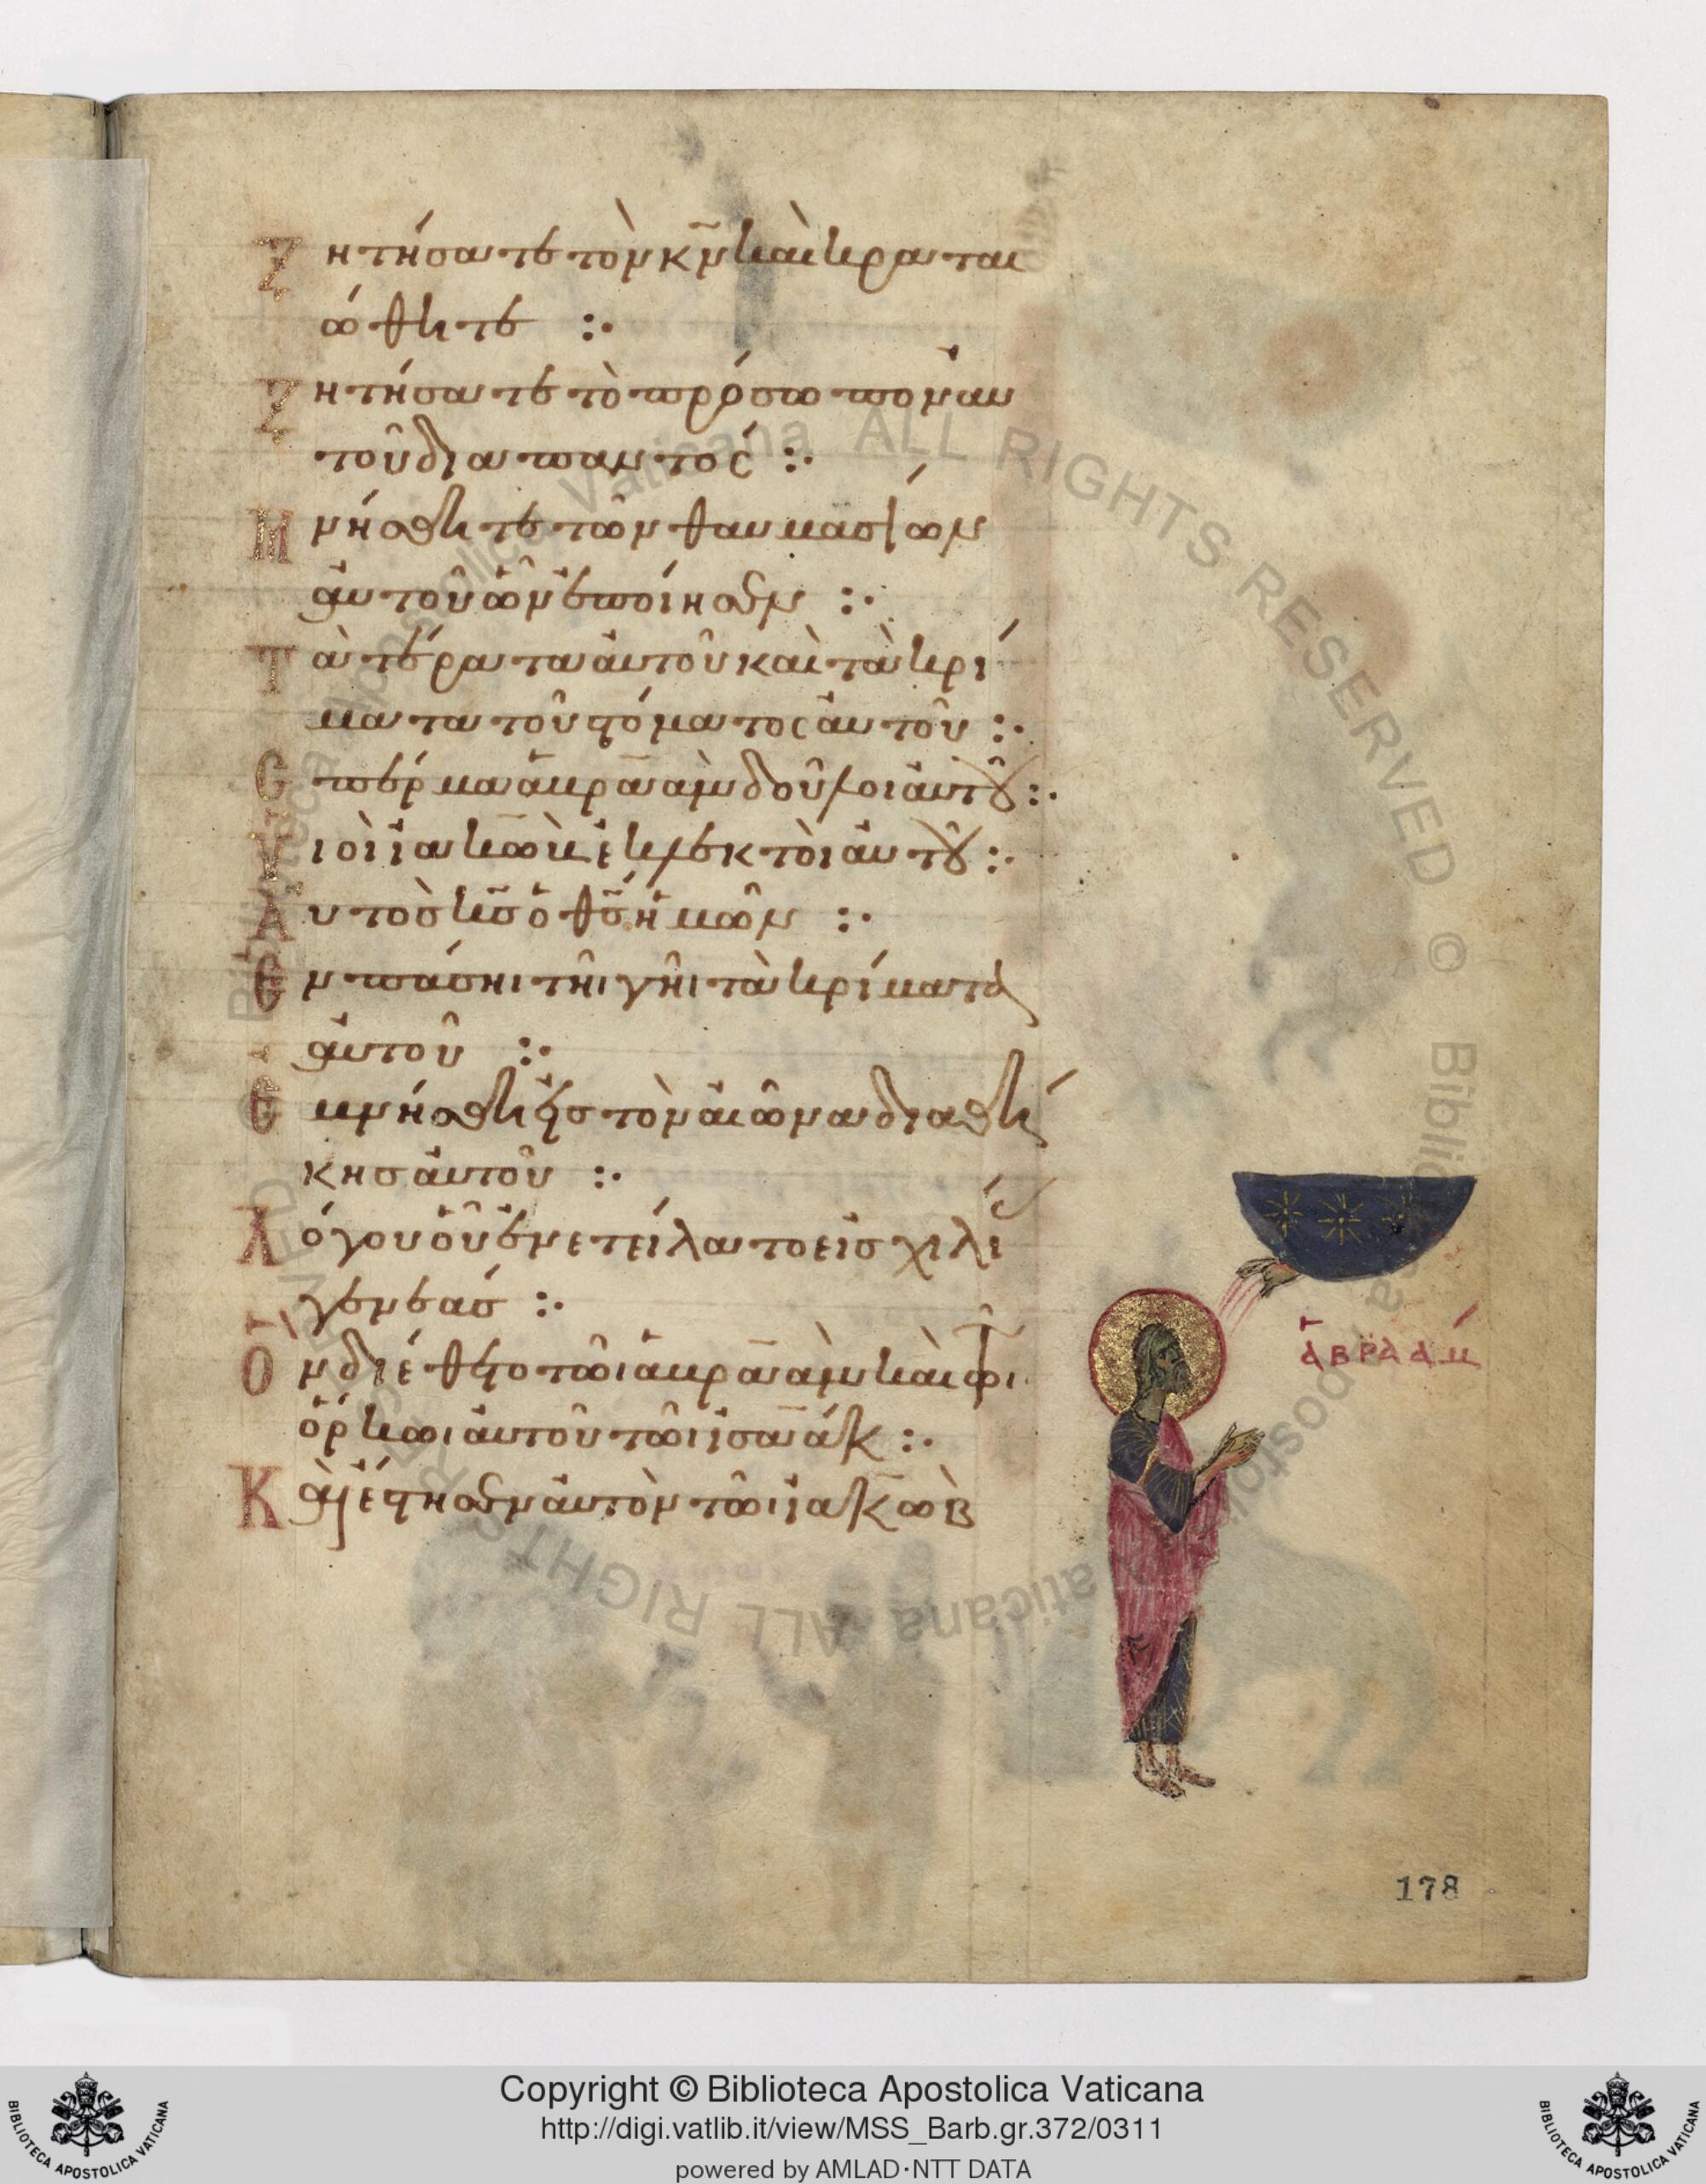 Ζητήσατε τὸν κ̅ν̅ καὶ κραται
ώθητε :·
Ζητήσατε τὸ πρόσωπον αυ
τοῦ διαπαντός :·
Μνήσθητε τῶν θαυμασίων
ἀυτοῦ ὧν ἐποίησεν :·
Τὰ τέρατα ἀυτοῦ καὶ τὰ κρί
ματα τοῦ στόματος ἀυτοῦ :·
Σπέρμα ἀβραὰμ δοῦλοι ἀυτοῦ :·
Υιοὶ ἰακὼβ ἐκλεκτοὶ ἀυτοῦ :·
Αυτὸς κ̅ς̅ ὁ θ̅ς̅ ἡμῶν :·
Εν πάσηι τῆι γῆι τὰ κρίματα
ἀυτοῦ :·
Εμνήσθη εἰς τὸν ἀιῶνα διαθή
κης ἀυτοῦ :·
Λόγου οὗ ἐνετείλατο εἰς χιλί
γενεάς :·
Ὃν διέθετο τῶι ἀβραὰμ καὶ τοῦ
ὅρκωι ἀυτοῦ τῶι ἰσαάκ :·
Καὶ ἔστησεν ἀυτὸν τῶι ἰακὼβ
ἀβραάμ
178
Biblioteca Apostolica Vaticana ALL RIGHTS RESERVED ©
Copyright © Biblioteca Apostolica Vaticana
http://digi.vatlib.it/view/MSS_Barb.gr.372/0311
powered by AMLAD·NTT DATA
BIBLIOTECA APOSTOLICA VATICANA
BIBLIOTECA APOSTOLICA VATICANA